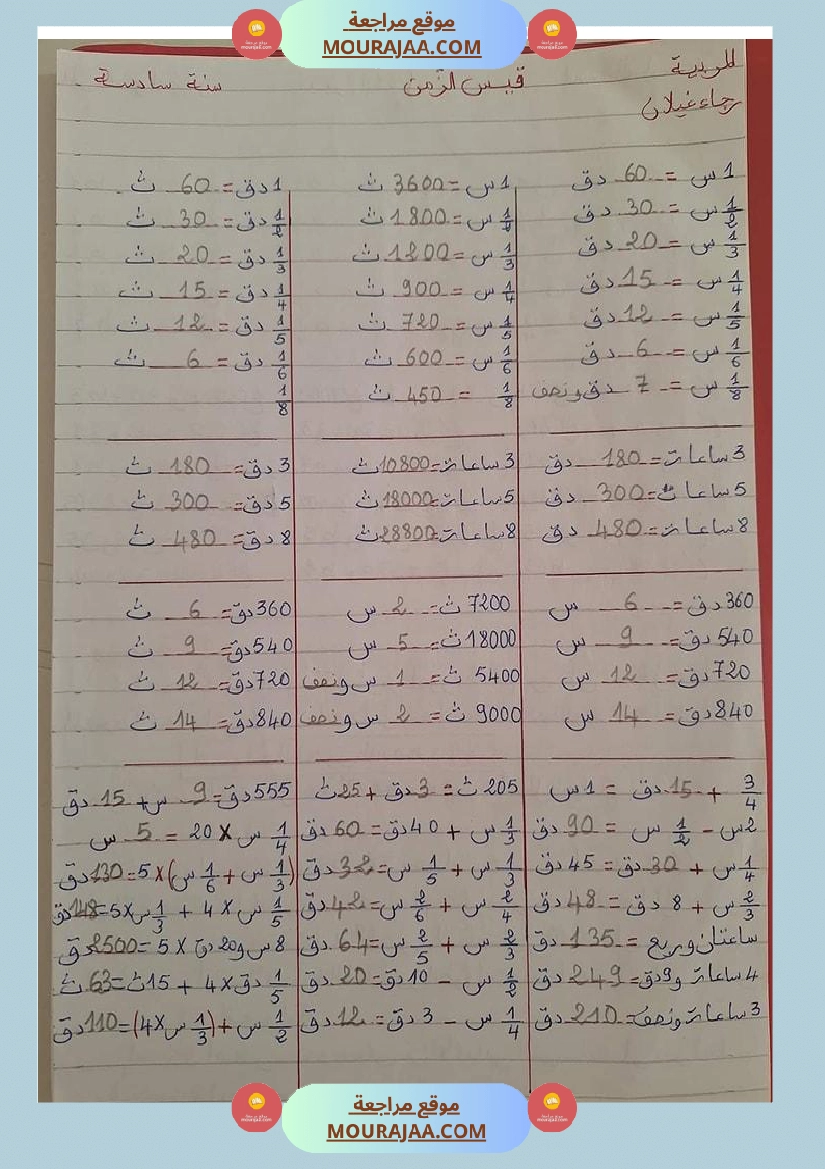 موقع مراجعة
MOURAJAA.COM
للمربية قيس الزمن سنة سادسة
رجاء غيلان
1 س = 60 دق
1/2 س = 30 دق
1/3 س = 20 دق
1/4 س = 15 دق
1/5 س = 12 دق
1/6 س = 6 دق
1/8 س = 7 دق ونصف
3 ساعات = 180 دق
5 ساعات = 300 دق
8 ساعات = 480 دق
360 دق = 6 س
540 دق = 9 س
720 دق = 12 س
840 دق = 14 س
3/4 + 15 دق = 1 س
2 س - 1/2 س = 90 دق
1/4 س + 30 دق = 45 دق
2/3 س + 8 دق = 48 دق
ساعتان وربع = 135 دق
4 ساعات و9 دق = 249 دق
3 ساعات ونصف = 210 دق
1 س = 3600 ث
1/2 س = 1800 ث
1/3 س = 1200 ث
1/4 س = 900 ث
1/5 س = 720 ث
1/6 س = 600 ث
1/8 = 450 ث
3 ساعات = 10800 ث
5 ساعات = 18000 ث
8 ساعات = 28800 ث
7200 ث = 2 س
18000 ث = 5 س
5400 ث = 1 س ونصف
9000 ث = 2 س ونصف
205 ث = 3 دق + 25 ث
1/3 س + 40 دق = 60 دق
1/3 س + 1/5 س = 32 دق
2/4 س + 2/6 س = 42 دق
2/3 س + 2/5 س = 64 دق
1/2 س - 10 دق = 20 دق
1/4 س - 3 دق = 12 دق
1 دق = 60 ث
1/2 دق = 30 ث
1/3 دق = 20 ث
1/4 دق = 15 ث
1/5 دق = 12 ث
1/6 دق = 6 ث
1/8
3 دق = 180 ث
5 دق = 300 ث
8 دق = 480 ث
360 دق = 6 ث
540 دق = 9 ث
720 دق = 12 ث
840 دق = 14 ث
555 دق = 9 س + 15 دق
1/4 س × 20 = 5 س
(1/3 س + 1/6 س) × 5 = 130 دق
1/5 س × 4 + 1/3 س × 5 = 148 دق
8 س و20 دق × 5 = 2500 دق
1/5 دق × 4 + 15 ث = 63 ث
1/2 س + (1/3 س × 4) = 110 دق
موقع مراجعة
MOURAJAA.COM